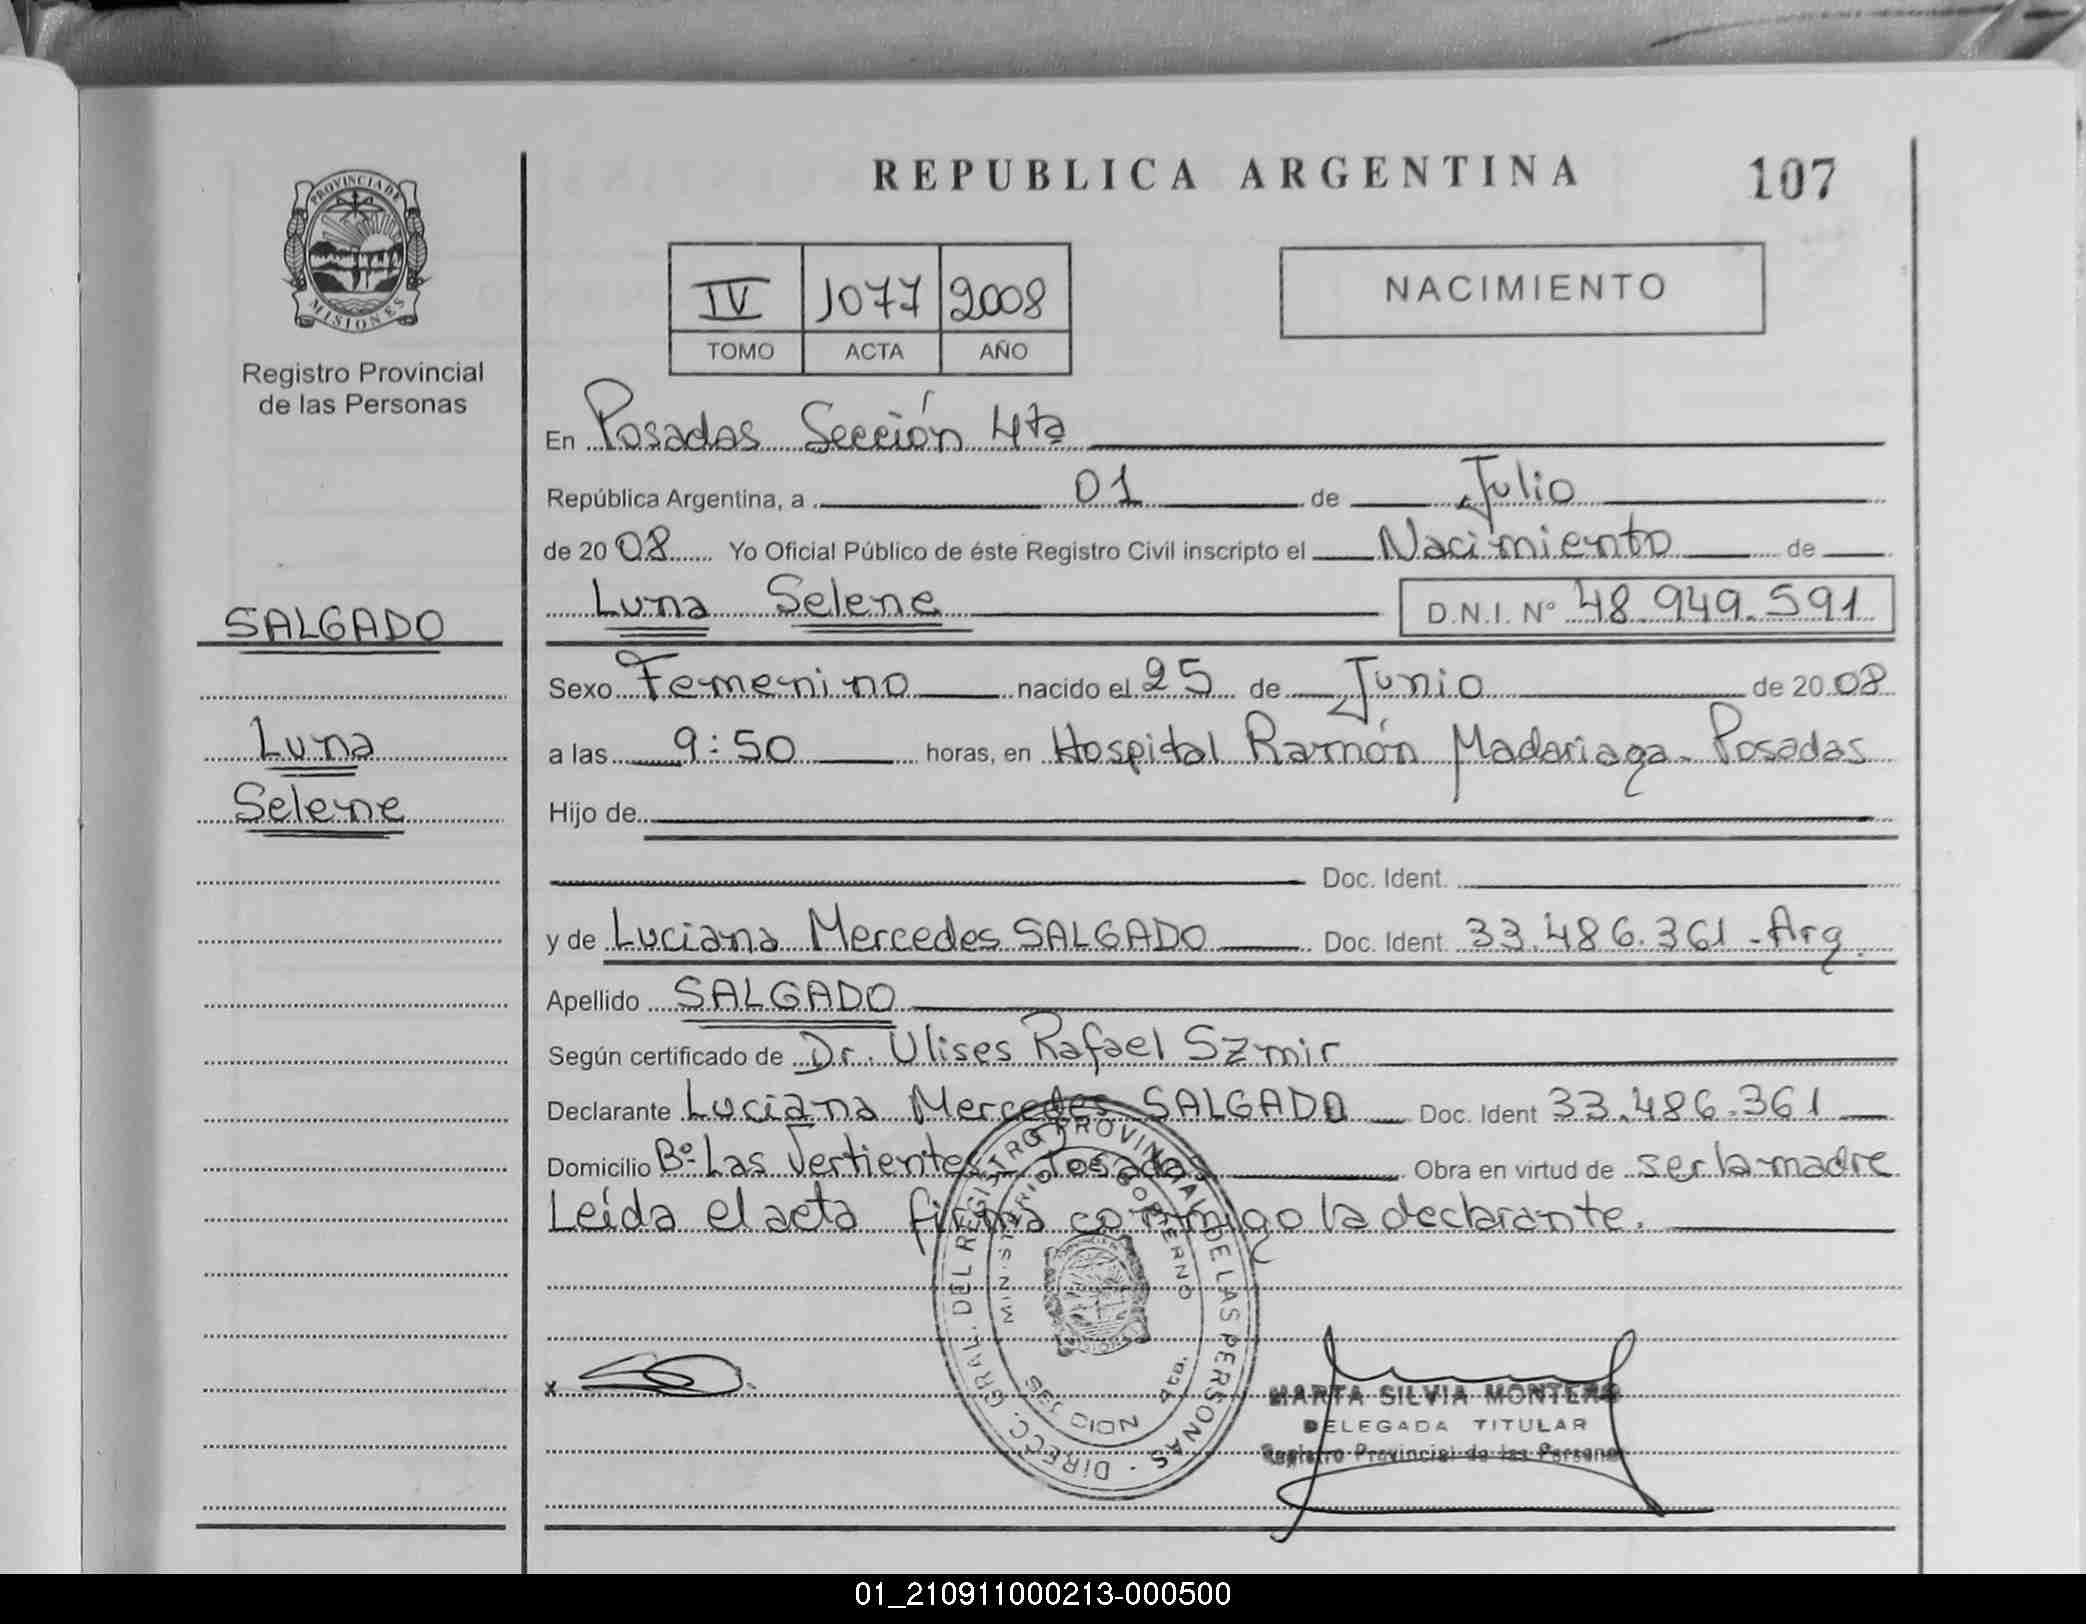 REPUBLICA ARGENTINA
107
PROVINCIA DE
MISIONES
Registro Provincial
de las Personas
IV 1077 2008
TOMO ACTA AÑO
NACIMIENTO
En Posadas Sección 4ta
República Argentina, a 01 de Julio
de 2008 Yo Oficial Público de éste Registro Civil inscripto el Nacimiento de
Luna Selene D.N.I. Nº 48.949.591
SALGADO
Luna
Selene
Sexo Femenino nacido el 25 de Junio de 2008
a las 9:50 horas, en Hospital Ramón Madariaga - Posadas
Hijo de
Doc. Ident.
y de Luciana Mercedes SALGADO Doc. Ident. 33.486.361 - Arg.
Apellido SALGADO
Según certificado de Dr. Ulises Rafael Szmir
Declarante Luciana Mercedes SALGADO Doc. Ident 33.486.361
Domicilio Bº Las Vertientes - Posadas Obra en virtud de ser la madre
Leída el acta firma conmigo la declarante.
DIRECC. GRAL. DEL REGISTRO PROVINCIAL DE LAS PERSONAS -
MINISTERIO DE GOBIERNO
SECCION 4ta.
x
MARTA SILVIA MONTERO
DELEGADA TITULAR
Registro Provincial de las Personas
01_210911000213-000500